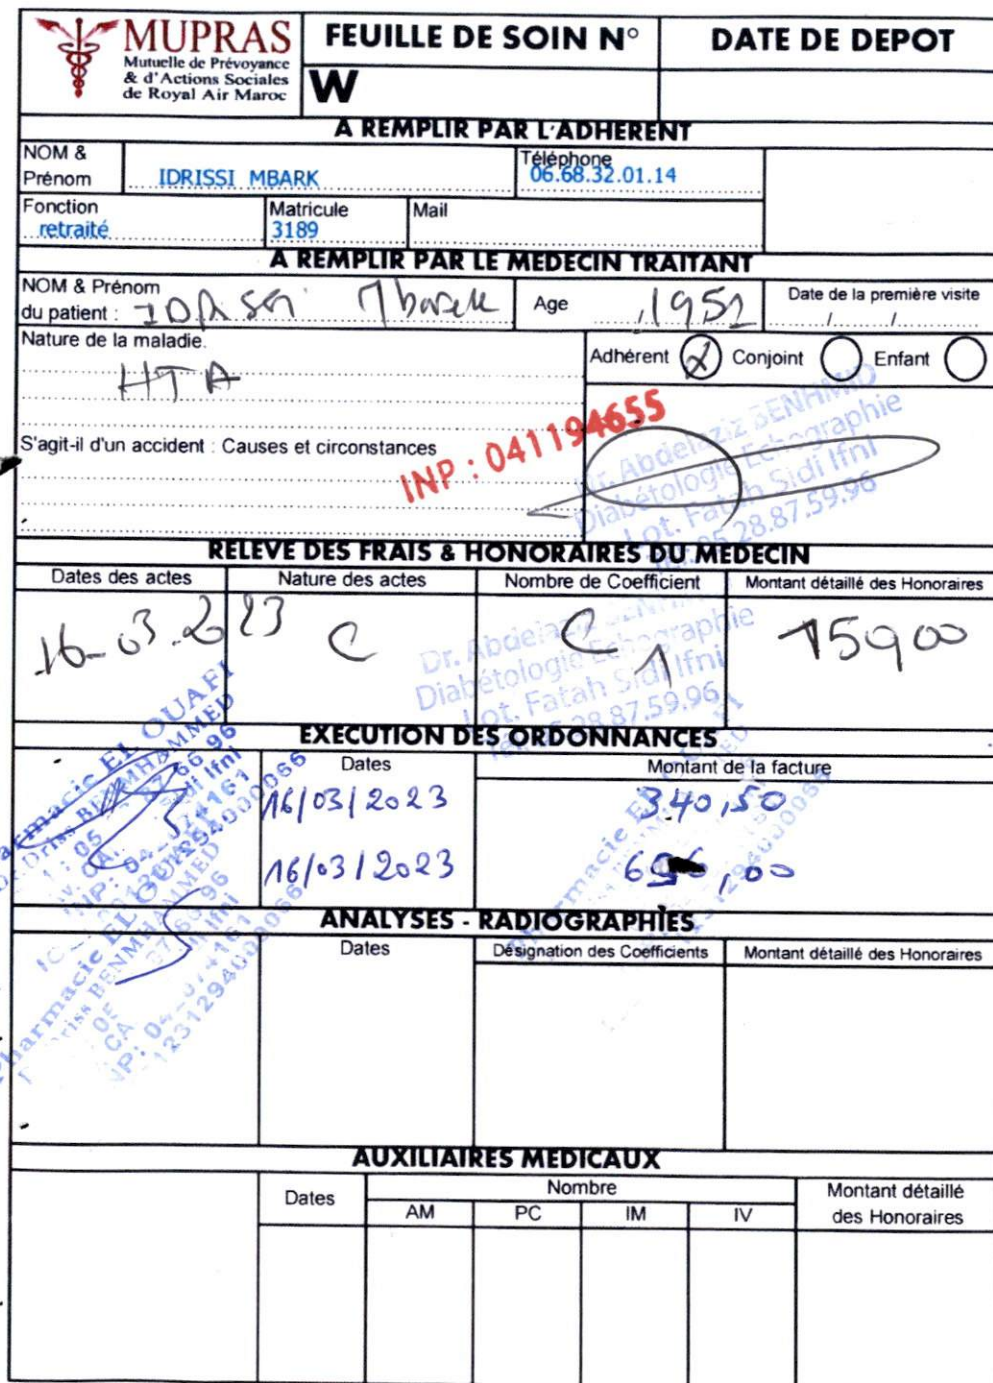 MUPRAS
Mutuelle de Prévoyance
& d'Actions Sociales
de Royal Air Maroc
FEUILLE DE SOIN N°
W
DATE DE DEPOT
A REMPLIR PAR L'ADHERENT
NOM &
Prénom
IDRISSI MBARK
Téléphone
06.68.32.01.14
Fonction
retraité
Matricule
3189
Mail
A REMPLIR PAR LE MEDECIN TRAITANT
NOM & Prénom
du patient :
Age
1952
Date de la première visite
Nature de la maladie.
HTA
Adhérent Conjoint Enfant
S'agit-il d'un accident : Causes et circonstances
INP : 041194655
Dr. Abdelaziz BENHMID
Diabétologie Echographie
Lot. Fatah Sidi Ifni
05.28.87.59.96
RELEVE DES FRAIS & HONORAIRES DU MEDECIN
Dates des actes Nature des actes Nombre de Coefficient Montant détaillé des Honoraires
16-03-2023 C C 1
Dr. Abdelaziz
Diabétologie Echographie
Lot. Fatah Sidi Ifni
28.87.59.96
EXECUTION DES ORDONNANCES
Dates Montant de la facture
16/03/2023 340,50
16/03/2023
Pharmacie EL OUAFI
Driss BENMHAMMED
Pharmacie EL OUAFI
Driss BENMHAMMED
ANALYSES - RADIOGRAPHIES
Dates Désignation des Coefficients Montant détaillé des Honoraires
AUXILIAIRES MEDICAUX
Dates Nombre Montant détaillé
des Honoraires
AM PC IM IV